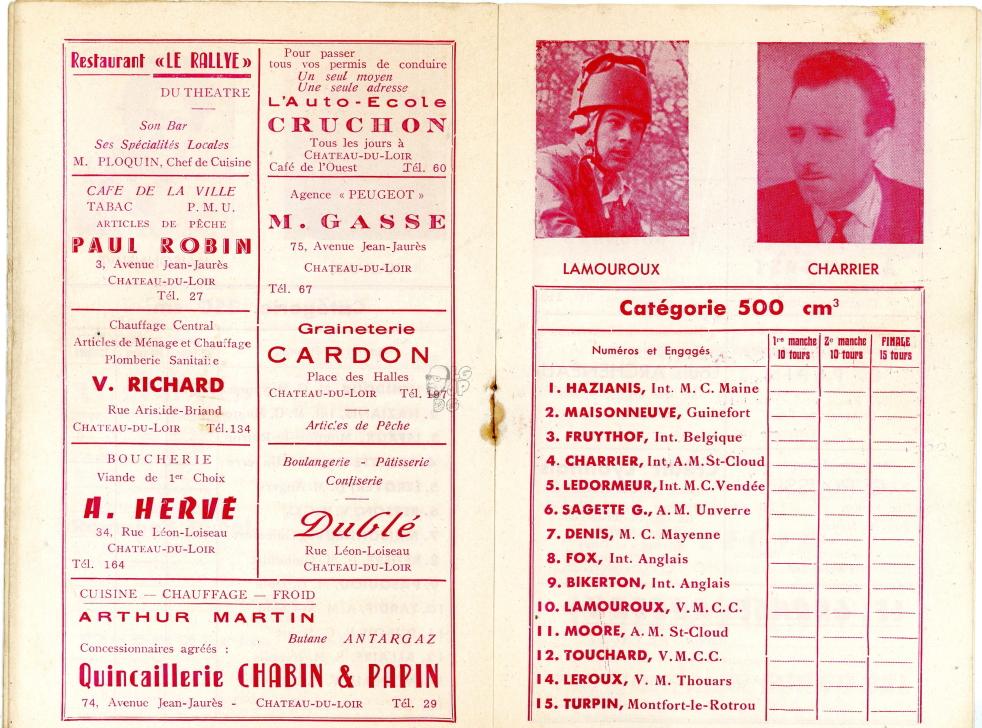 Restaurant «LE RALLYE»
DU THEATRE
Son Bar
Ses Spécialités Locales
M. PLOQUIN, Chef de Cuisine
CAFE DE LA VILLE
TABAC P. M. U.
ARTICLES DE PÊCHE
PAUL ROBIN
3, Avenue Jean-Jaurès
CHATEAU-DU-LOIR
Tél. 27
Chauffage Central
Articles de Ménage et Chauffage
Plomberie Sanitaire
V. RICHARD
Rue Aris.ide-Briand
CHATEAU-DU-LOIR Tél.134
BOUCHERIE
Viande de 1er Choix
A. HERVÉ
34, Rue Léon-Loiseau
CHATEAU-DU-LOIR
Tél. 164
Pour passer
tous vos permis de conduire
Un seul moyen
Une seule adresse
L'Auto-Ecole
CRUCHON
Tous les jours à
CHATEAU-DU-LOIR
Café de l'Ouest Tél. 60
Agence « PEUGEOT »
M. GASSE
75, Avenue Jean-Jaurès
CHATEAU-DU-LOIR
Tél. 67
Graineterie
CARDON
Place des Halles
CHATEAU-DU-LOIR Tél. 197
Articles de Pêche
Boulangerie - Pâtisserie
Confiserie
Dublé
Rue Léon-Loiseau
CHATEAU-DU-LOIR
CUISINE — CHAUFFAGE — FROID
ARTHUR MARTIN
Butane ANTARGAZ
Concessionnaires agréés :
Quincaillerie CHABIN & PAPIN
74, Avenue Jean-Jaurès - CHATEAU-DU-LOIR Tél. 29
LAMOUROUX CHARRIER
Catégorie 500 cm3
Numéros et Engagés
1re manche 10 tours
2e manche 10 tours
FINALE 15 tours
1. HAZIANIS, Int. M. C. Maine
2. MAISONNEUVE, Guinefort
3. FRUYTHOF, Int. Belgique
4. CHARRIER, Int, A.M. St-Cloud
5. LEDORMEUR, Int. M.C. Vendée
6. SAGETTE G., A.M. Unverre
7. DENIS, M. C. Mayenne
8. FOX, Int. Anglais
9. BIKERTON, Int. Anglais
10. LAMOUROUX, V.M.C.C.
11. MOORE, A.M. St-Cloud
12. TOUCHARD, V.M.C.C.
14. LEROUX, V. M. Thouars
15. TURPIN, Montfort-le-Rotrou